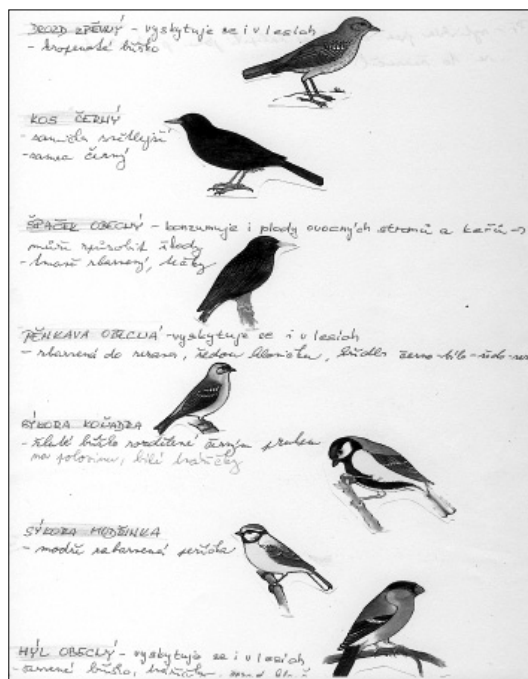 DROZD ZPĚVNÝ - vyskytuje se i v lesích
- kropenaté bříško
KOS ČERNÝ
- samička světlejší
- samec černý
ŠPAČEK OBECNÝ - konzumuje i plody ovocných stromů a keřů ->
může způsobit škody
- tmavě zbarvený, tečky
PĚNKAVA OBECNÁ - vyskytuje se i v lesích
- zbarvená do rezava, šedou hlavičku, křídla černo-bílo-šedo-
SÝKORA KOŇADRA
- žluté bříško rozdělené černým pruhem
na polovinu, bílé tvářičky
SÝKORA MODŘINKA
- modře zabarvená peříčka
HÝL OBECNÝ - vyskytuje se i v lesích
- červené bříško,